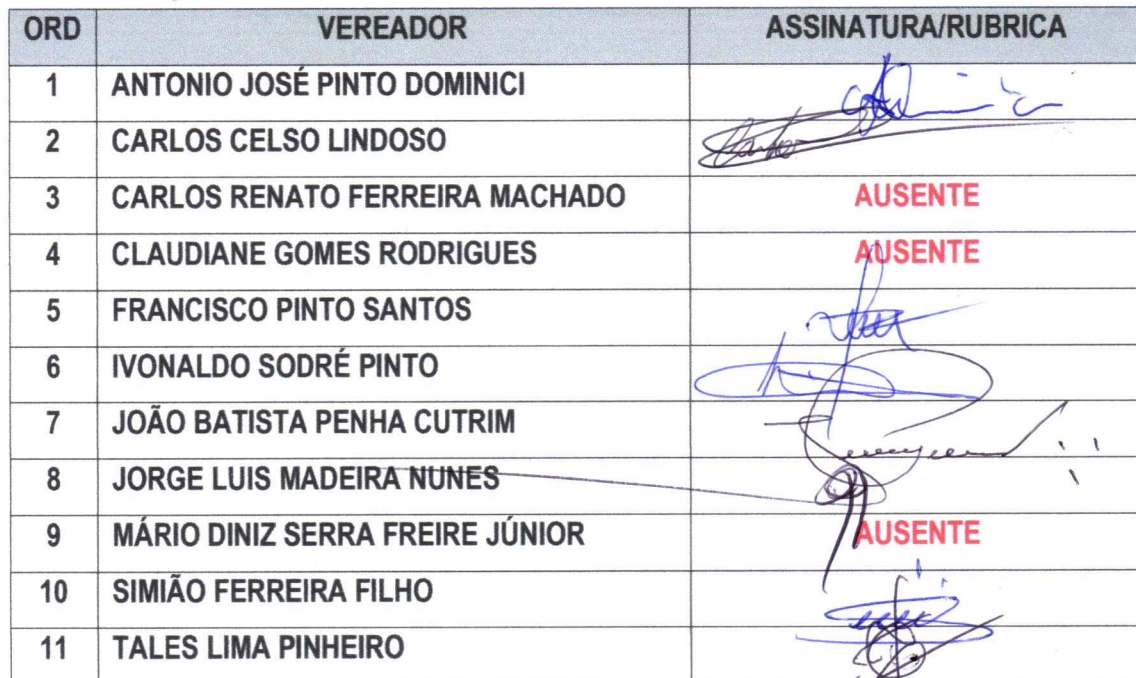 ORD VEREADOR ASSINATURA/RUBRICA
1 ANTONIO JOSÉ PINTO DOMINICI
2 CARLOS CELSO LINDOSO
3 CARLOS RENATO FERREIRA MACHADO AUSENTE
4 CLAUDIANE GOMES RODRIGUES AUSENTE
5 FRANCISCO PINTO SANTOS
6 IVONALDO SODRÉ PINTO
7 JOÃO BATISTA PENHA CUTRIM
8 JORGE LUIS MADEIRA NUNES
9 MÁRIO DINIZ SERRA FREIRE JÚNIOR AUSENTE
10 SIMIÃO FERREIRA FILHO
11 TALES LIMA PINHEIRO